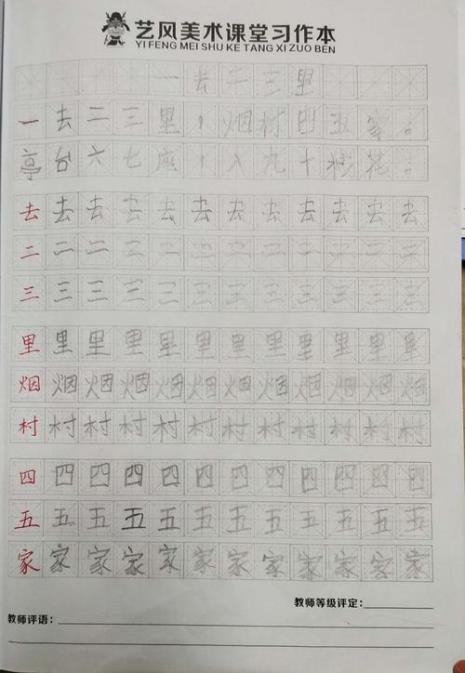 艺风美术课堂习作本
YI FENG MEI SHU KE TANG XI ZUO BEN
一去二三里
一去二三里，烟村四五家。
亭台六七座，八九十枝花。
去去去去去去去去去去去去
二二二二二二二二二二二二
三三三三三三三三三三三三
里里里里里里里里里里里里
烟烟烟烟烟烟烟烟烟烟烟烟
村村村村村村村村村村村村
四四四四四四四四四四四四
五五五五五五五五五五五五
家家家家家家家家家家家家
教师等级评定：
教师评语：